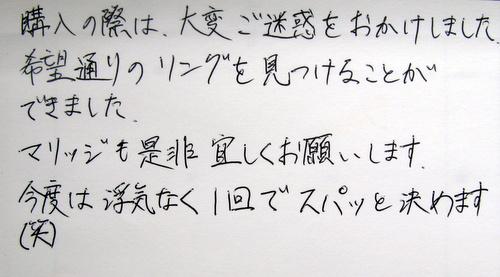 購入の際は、大変ご迷惑をおかけしました。
希望通りのリングを見つけることが
できました。
マリッジも是非宜しくお願いします。
今度は浮気なく1回でスパッと決めます
(笑)